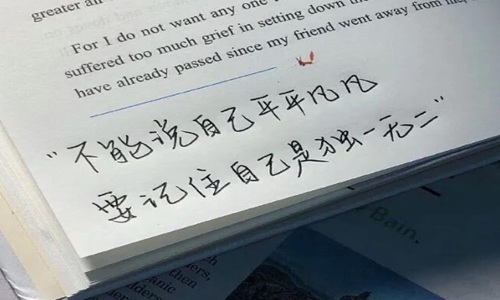 greater
For I do not want any one
suffered too much grief in setting down
have already passed since my friend went away from
“不能说自己平平凡凡
要记住自己是独一无二”
Bain.